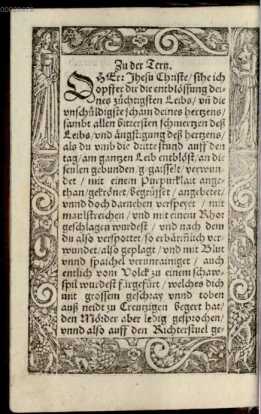 Zu der Tertz.
HEr: Jhesu Christe / sihe ich
opffer dir die entblössung dei-
nes züchtigsten Leibs / vñ die
vnschüldigste scham deines hertzens /
sambt allen bittersten schmertzen deß
Leibs / vnd ängstigung deß hertzens /
als du vmb die dritte stund auff den
tag / am gantzen Leib entblöst / an die
seulen gebunden / gegaisselt / verwun-
det / mit einem Purpurklait ange-
than / gekrönet / gegrüsset / angebetet /
vnnd doch darneben verspeyet / mit
maulstreichen / vnd mit einem Rhor
geschlagen wurdest / vnd nach dem
du also verspottet / so erbärmlich ver-
wundet / also geplagt / vnd mit Blut
vnnd spaichel verunrainiget / auch
entlich vom Volck zu einem schaw-
spil wurdest fürgefürt / welches dich
mit grossem geschray vnnd toben
auß neidt zu Creutzigen begert hat /
den Mörder aber ledig gesprochen /
vnnd also auff den Richterstuel ge-